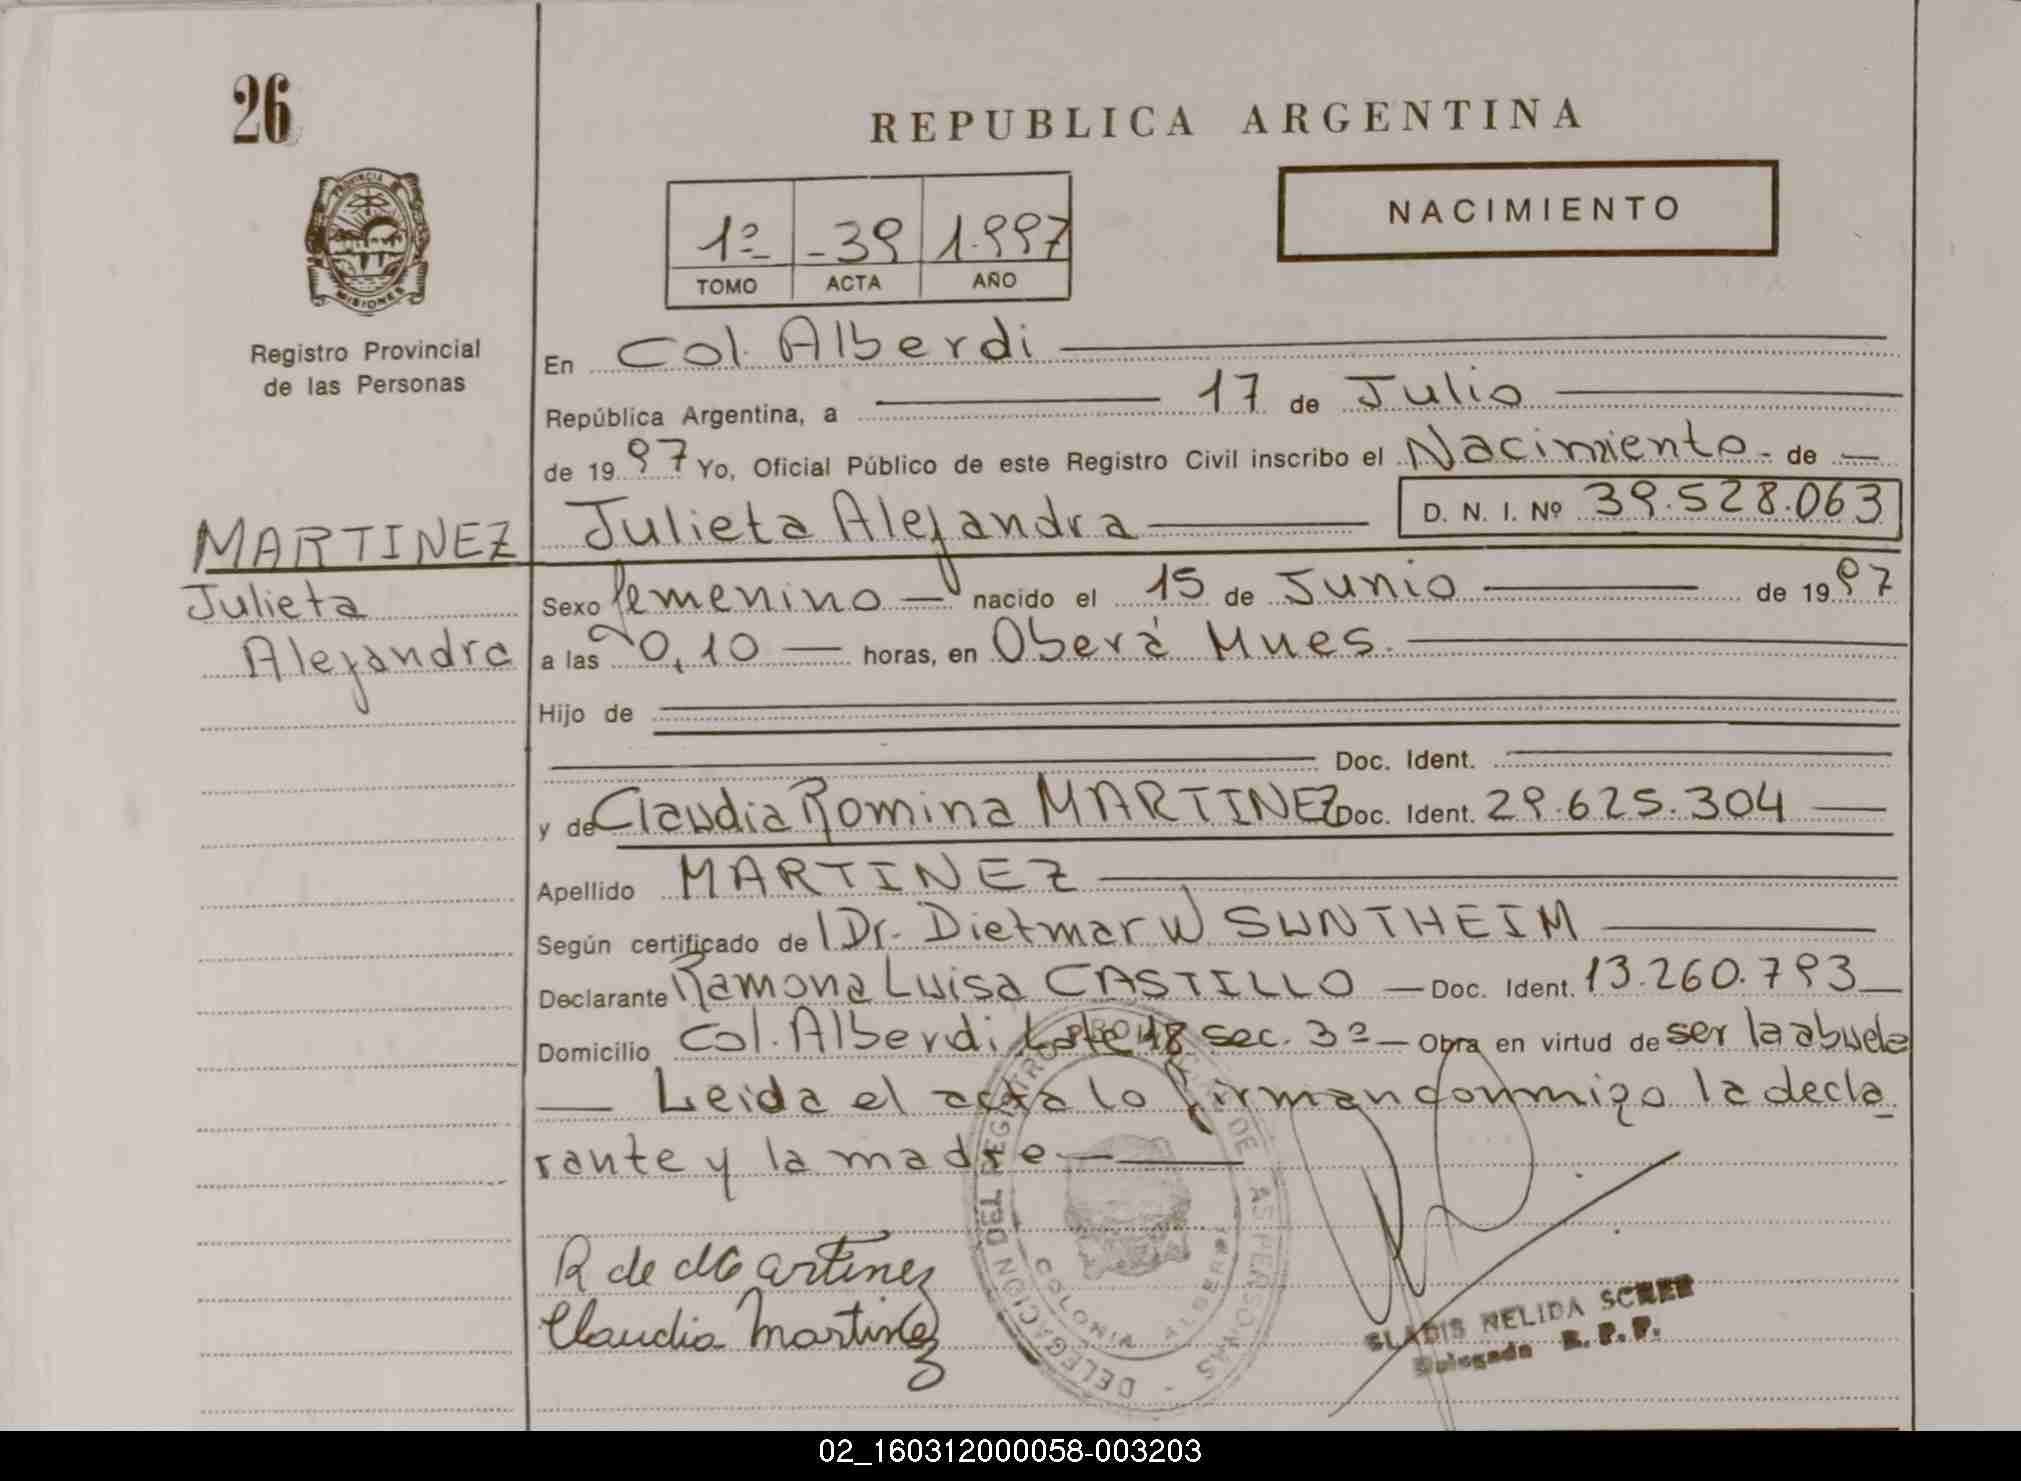 26
REPUBLICA ARGENTINA
PROVINCIA
MISIONES
NACIMIENTO
1º -39 1.997
TOMO ACTA AÑO
Registro Provincial
de las Personas
En Col. Alberdi
República Argentina, a 17 de Julio
de 1997 Yo, Oficial Público de este Registro Civil inscribo el Nacimiento - de
MARTINEZ Julieta Alejandra D. N. I. Nº 39.528.063
Julieta Sexo femenino nacido el 15 de Junio de 1997
Alejandra a las 0,10 horas, en Oberá Mnes.
Hijo de
Doc. Ident.
y de Claudia Romina MARTINEZ Doc. Ident. 29.625.304
Apellido MARTINEZ
Según certificado de Dr. Dietmar W SUNTHEIM
Declarante Ramona Luisa CASTILLO Doc. Ident. 13.260.793
Domicilio Col. Alberdi Lote 48 sec. 3ª Obra en virtud de ser la abuela
Leida el acta lo firman conmigo la decla
rante y la madre
R de Martinez
Claudia Martinez
DELEGACION DEL REGISTRO DE LAS PERSONAS
COLONIA ALBERDI
GLADIS NELIDA
Delegada R. P. P.
02_160312000058-003203